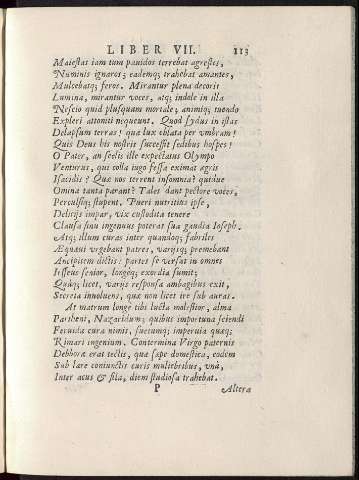 LIBER VII. 113
Maiestas iam tum pauidos terrebat agrestes,
Numinis ignaros; eademq; trahebat amantes,
Mulcebatq; feros. Mirantur plena decoris
Lumina, mirantur voces, atq; indole in illa
Nescio quid plusquam mortale; animiq; tuendo
Expleri attoniti nequeunt. Quod sydus in istas
Delapsum terras! qua lux oblata per vmbram!
Quis Deus his nostris successit sedibus hospes!
O Pater, an scelis ille expectatus Olympo
Venturus, qui colla iugo fessa eximat agris
Isacidis? Quæ nos terrent insomnia? quidue
Omina tanta parant? Tales dant pectore voces,
Perculsiq; stupent. Pueri nutritius ipse,
Delicijs impar, vix custodita tenere
Clausa sinu ingenuus poterat sua gaudia Ioseph.
Atq; illum curas inter quandoq; fabriles
Æquaui vrgebant patres, varijsq; premebant
Ancipitem dictis: partes se versat in omnes
Iesseus senior, longèq; exordia sumit;
Quàq; licet, varijs responsa ambagibus exit,
Secreta inuoluens, quæ non licet ire sub auras.
At matrem longè tibi lucta molestior, alma
Partheni, Nazaridum; quibus importuna sciendi
Fecunda cura nimis, suetumq; imperuia quæq;
Rimari ingenium. Contermina Virgo paternis
Debboræ erat tectis, quæ sæpe domestica, eodem
Sub lare coniunctis curis muliebribus, vnà,
Inter acus & fila, diem studiosa trahebat.
P Altera